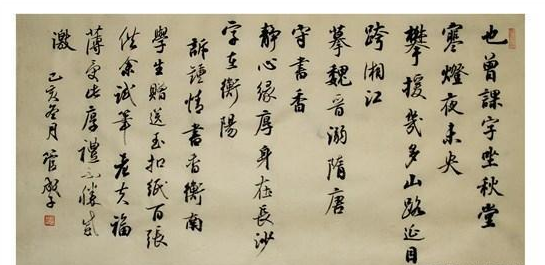 也曾課字坐秋堂
寒燈夜未央
攀援幾多山路延目
跨湘江
摹魏晉溯隋唐
守書香
靜心緣厚身在長沙
字在衡陽
訴鍾情書香衡南
學生贈送玉扣紙百張
供余試筆 老夫福
薄受此厚禮不勝感
激 己亥冬月